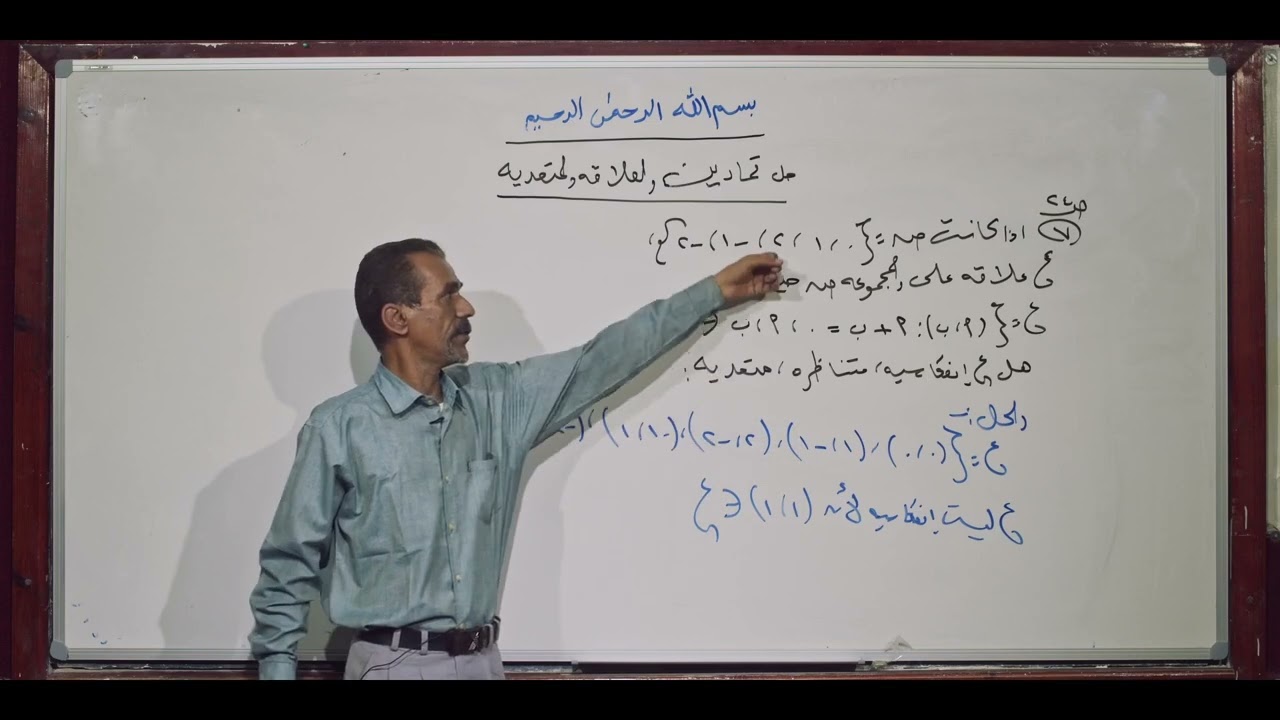 بسم الله الرحمن الرحيم
حل تمارين العلاقه المتعديه
ص٢٤
(٧) اذا كانت صہ = {٠، ١، ٢، -١، -٢}،
ع علاقه على المجموعه صہ حيث
ع = {(٩، ب): ٩ + ب = ٠، ٩، ب ∈
هل ع إنعكاسيه، متناظره، متعديه:
الحل:-
ع = {(٠،٠)، (١،-١)، (٢،-٢)، (-١،١)، (-
ع ليست إنعكاسيه لأنه (١،١) ∉ ع